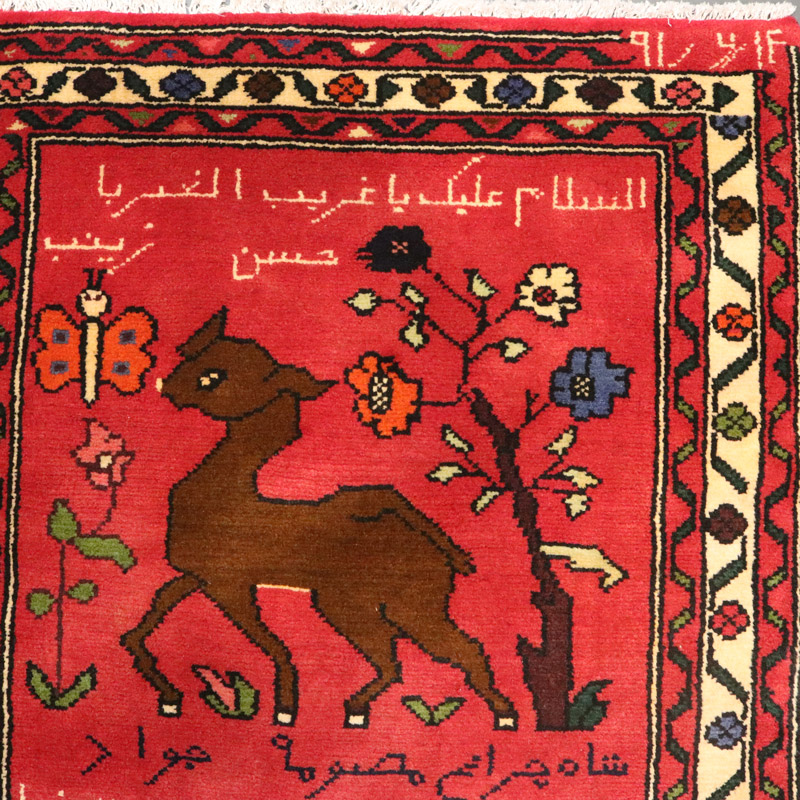 ۹۱/۶/۱۴
السلام علیک یا غریب الغربا
حسن زینب
شاه چراغ معصومه جواد